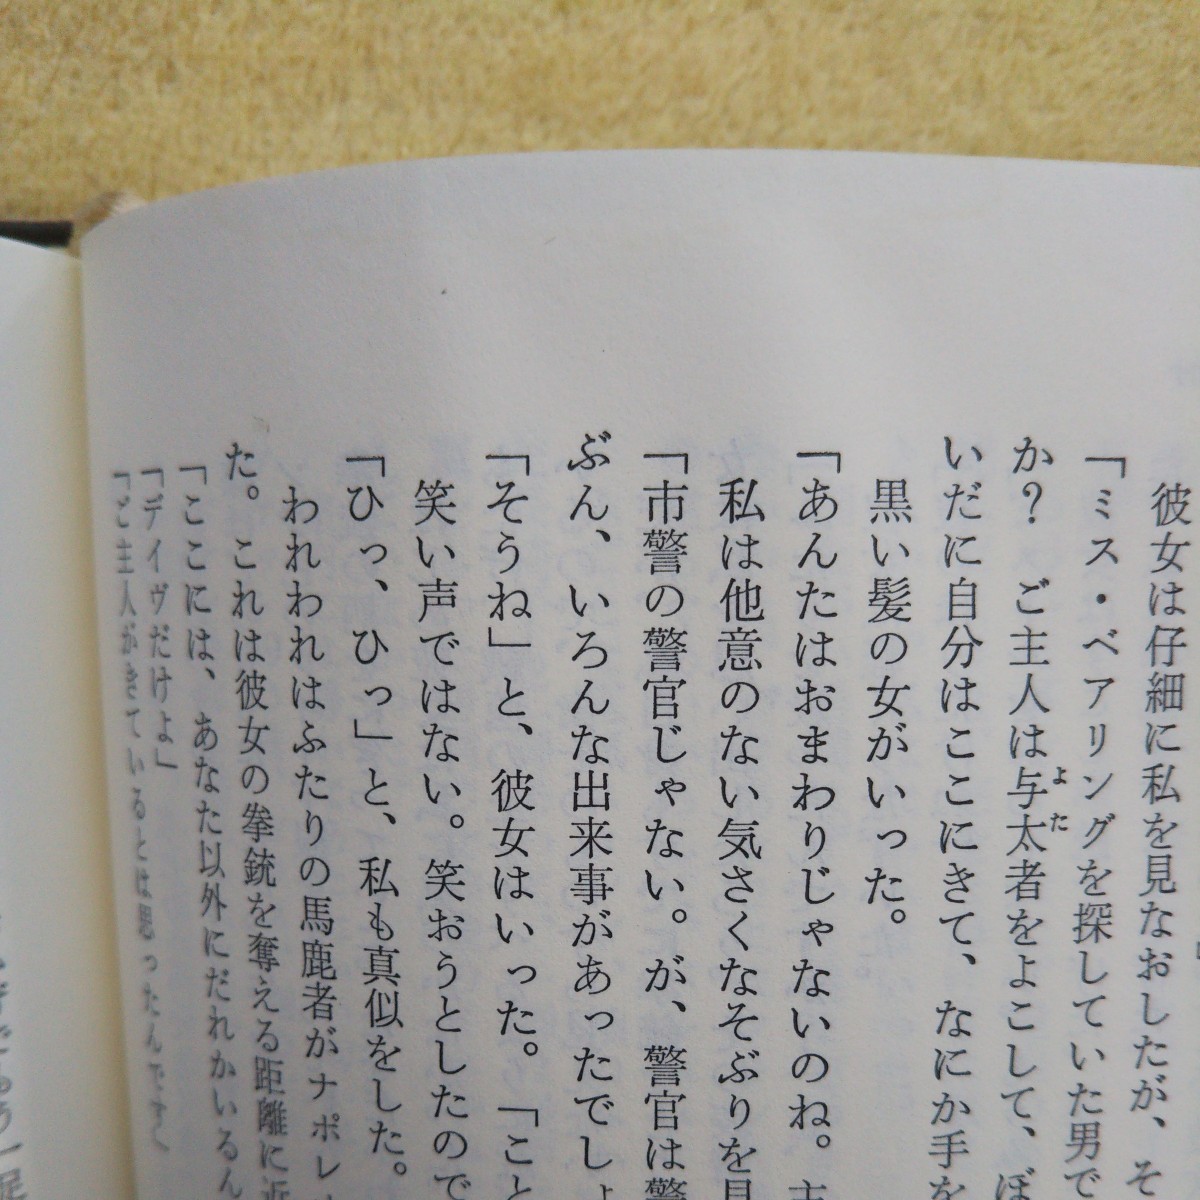 彼女は仔細に私を見なおしたが、そ
「ミス・ベアリングを探していた男で
か？　ご主人は与太者をよこして、ぼ
よた
いだに自分はここにきて、なにか手を
黒い髪の女がいった。
「あんたはおまわりじゃないのね。
私は他意のない気さくなそぶりを見
「市警の警官じゃない。が、警官は警
ぶん、いろんな出来事があったでしょ
「そうね」と、彼女はいった。「こと
笑い声ではない。笑おうとしたので
「ひっ、ひっ」と、私も真似をした。
われわれはふたりの馬鹿者がナポレ
た。これは彼女の拳銃を奪える距離に近
「ここには、あなた以外にだれかいるん
「デイヴだけよ」
「ご主人がきているとは思ったんですく